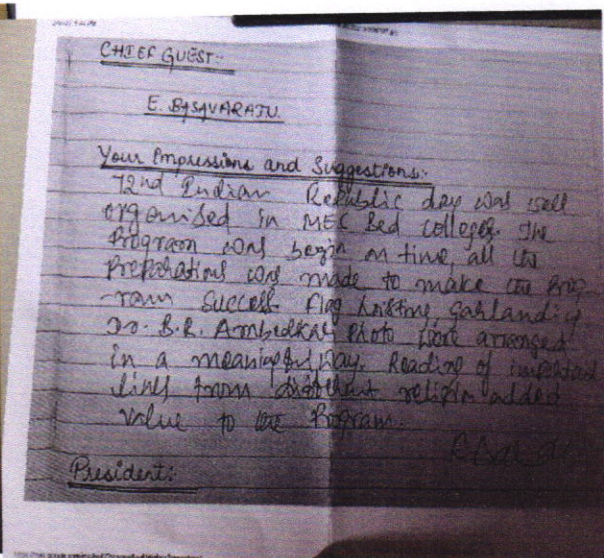 CHIEF GUEST:-
E. BASAVARAJU.
Your Impressions and Suggestions:-
72nd Indian Republic day was well
organised in MEC Bed colleges. The
Program was begin on time, all the
Preparations was made to make the Prog-
-ram Success. Flag hosting, garlanding
Dr. B.R. Ambedkar Photo were arranged
in a meaningful way. Reading of important
lines from different religion added
value to the Program.
President: